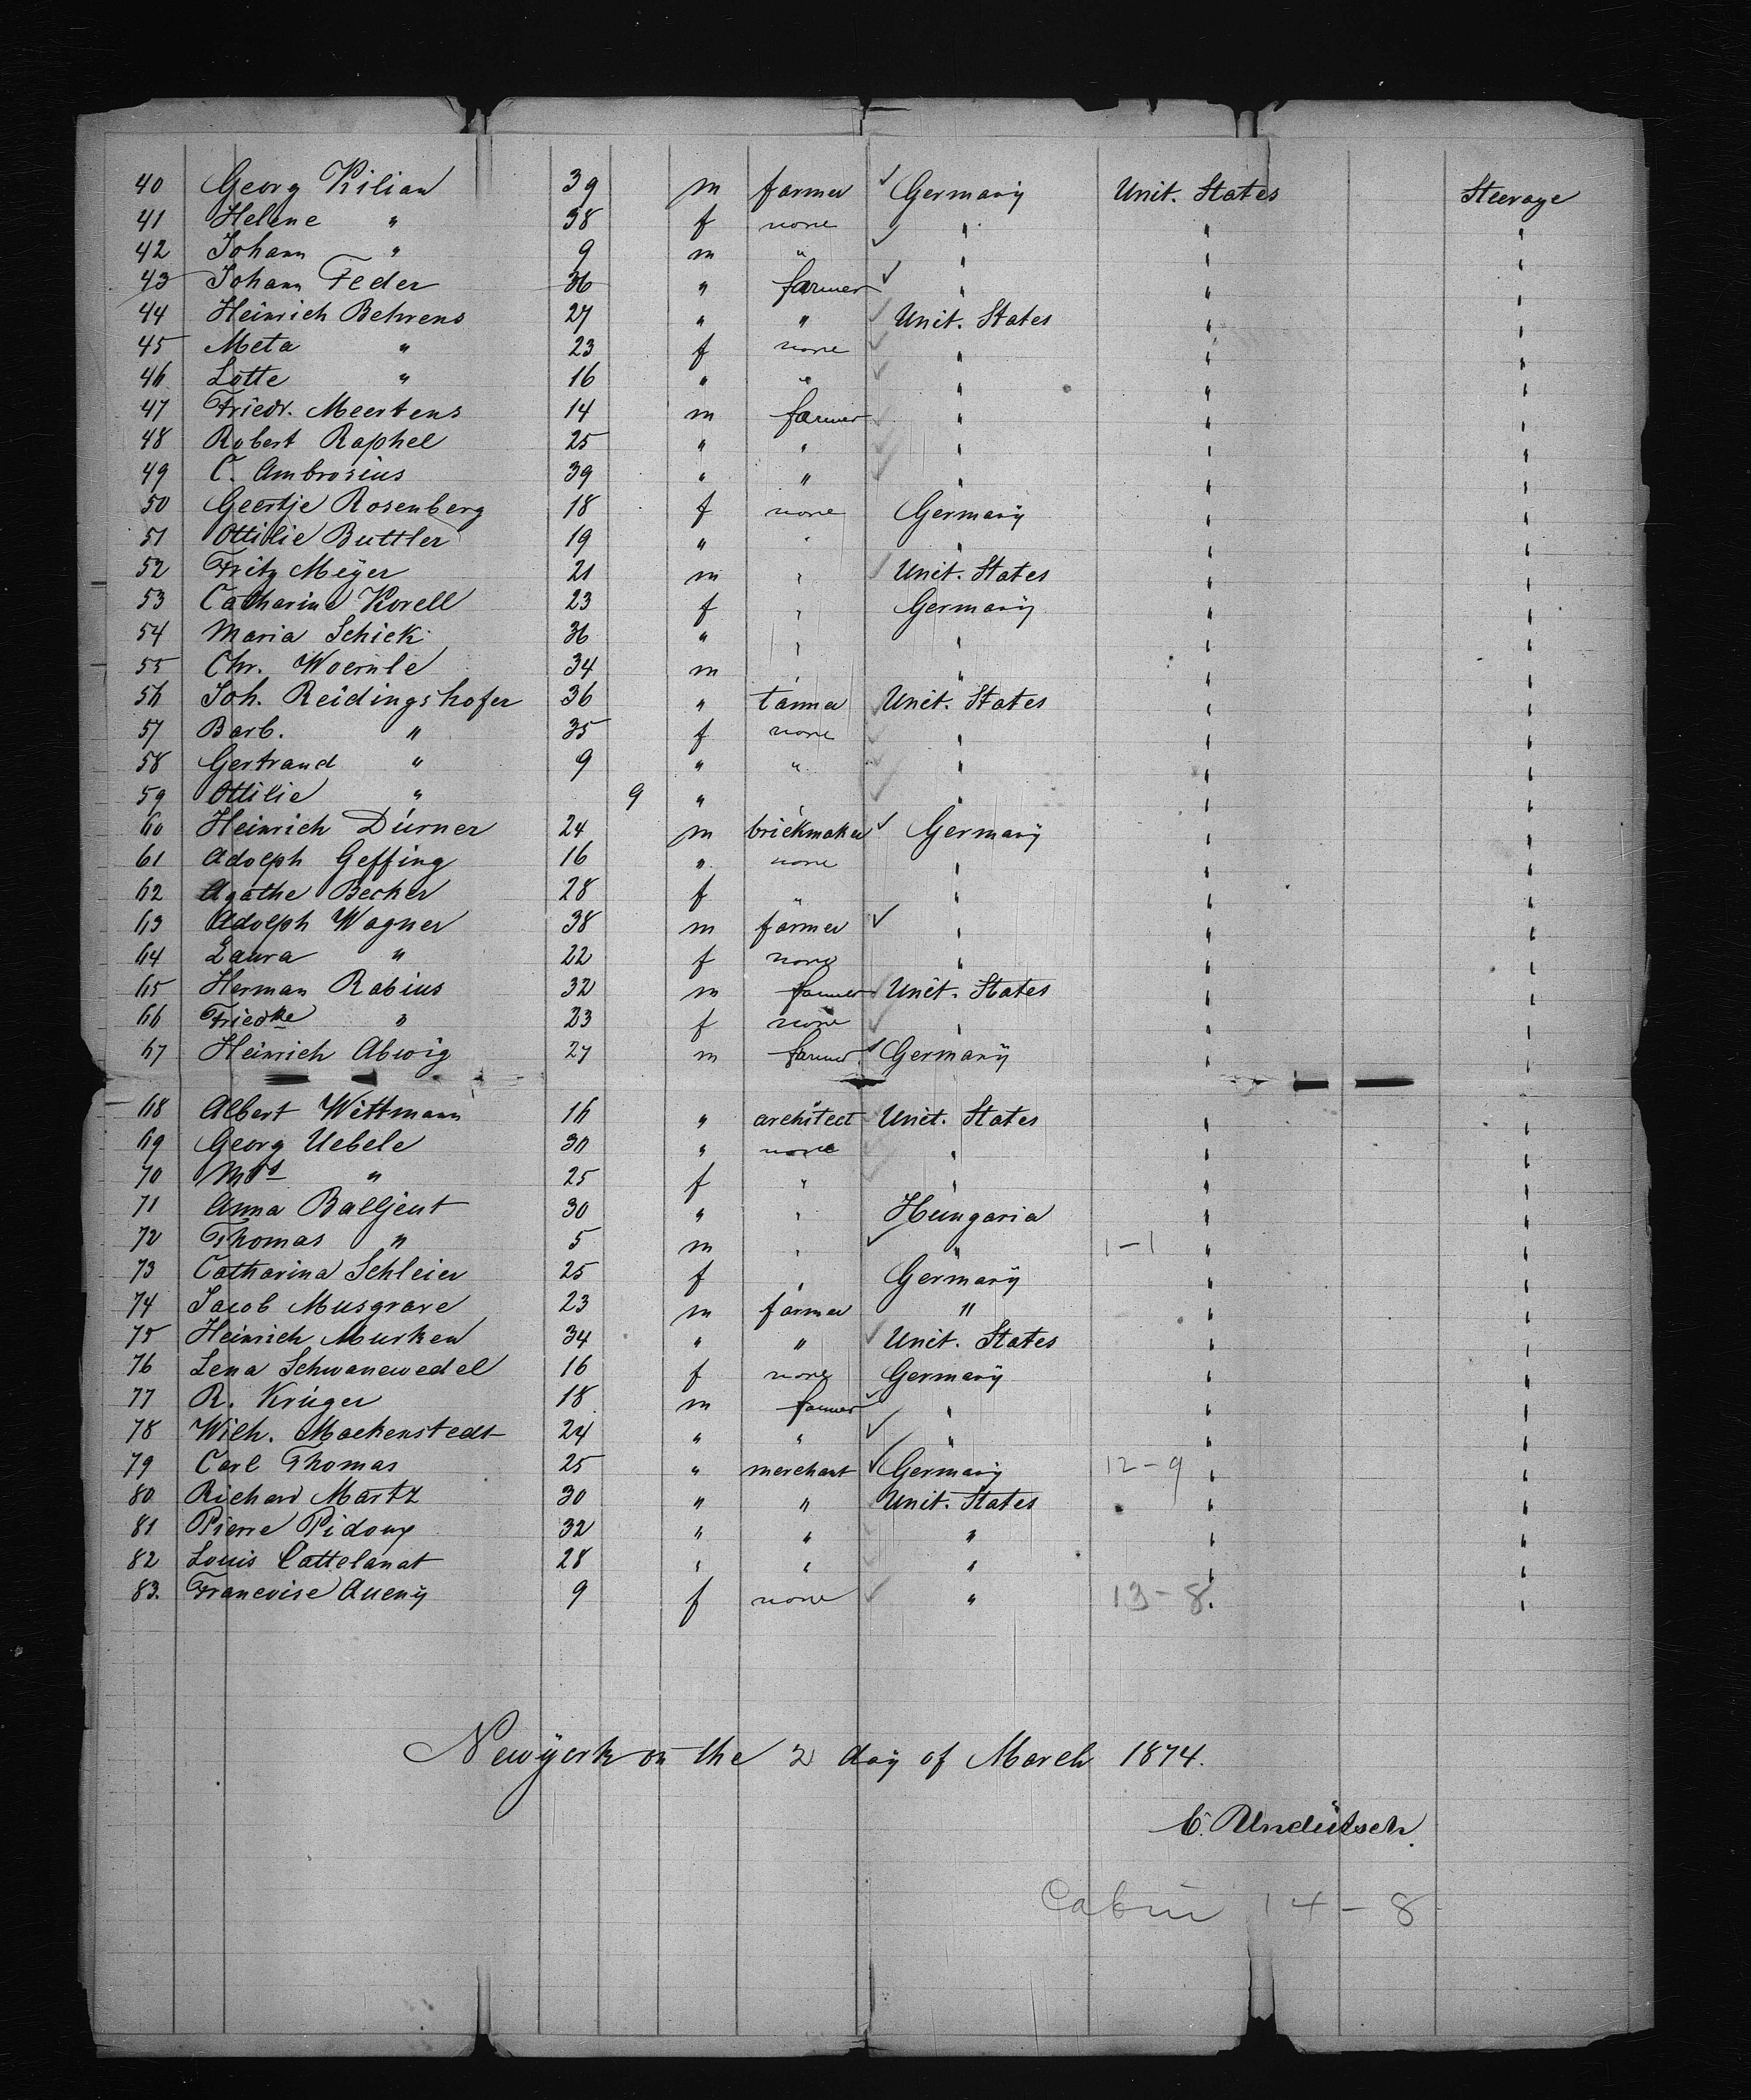 40 Georg Kilian 39 m farmer ✓ Germany Unit. States Steerage
41 Helene " 38 f none " " "
42 Johann " 9 m " ✓ " " "
43 Johann Feder 36 " farmer ✓ " " "
44 Heinrich Behrens 27 " " ✓ Unit. States " "
45 Meta " 23 f none ✓ " " "
46 Lotte " 16 " " ✓ " " "
47 Friedr. Meertens 14 m farmer ✓ " " "
48 Robert Raphel 25 " " ✓ " " "
49 C. Ambrosius 39 " " ✓ " " "
50 Geertje Rosenberg 18 f none Germany " "
51 Ottilie Buttler 19 " " " " "
52 Fritz Meyer 21 m " ✓ Unit. States " "
53 Catharine Korell 23 f " Germany " "
54 Maria Schick 36 " " " " "
55 Chr. Woernle 34 m " " " "
56 Joh. Reidingshofer 36 " tanner ✓ Unit. States " "
57 Barb. " 35 f none ✓ " " "
58 Gertraud " 9 " " ✓ " " "
59 Ottilie " 9 " " ✓ " " "
60 Heinrich Dürner 24 m brickmaker ✓ Germany " "
61 Adolph Geffing 16 " none " " "
62 Agathe Becker 28 f " " " "
63 Adolph Wagner 38 m farmer ✓ " " "
64 Laura " 22 f none " " "
65 Herman Rabius 32 m farmer ✓ Unit. States " "
66 Friedke " 23 f none ✓ " " "
67 Heinrich Abwig 27 m farmer ✓ Germany " "
68 Albert Wittmann 16 " architect ✓ Unit. States " "
69 Georg Uebele 30 " none ✓ " " "
70 Mrs " 25 f " ✓ " " "
71 Anna Balljeut 30 " " Hungaria " "
72 Thomas " 5 m " ✓ " 1-1 " "
73 Catharina Schleier 25 f " Germany " "
74 Jacob Musgrave 23 m farmer " " "
75 Heinrich Murken 34 " " ✓ Unit. States " "
76 Lena Schwanewedel 16 f none Germany " "
77 R. Krüger 18 m farmer ✓ " " "
78 Wilh. Mackenstedt 24 " " ✓ " " "
79 Carl Thomas 25 " merchant ✓ Germany 12-9 " "
80 Richard Martz 30 " " ✓ Unit. States " "
81 Pierre Pidoux 32 " " ✓ " " "
82 Louis Cattelanat 28 " " ✓ " " "
83. Francoise Queny 9 f none ✓ " 13-8 " "
Newyork on the 2 day of March 1874.
C. Undütsch.
Cabin 14-8